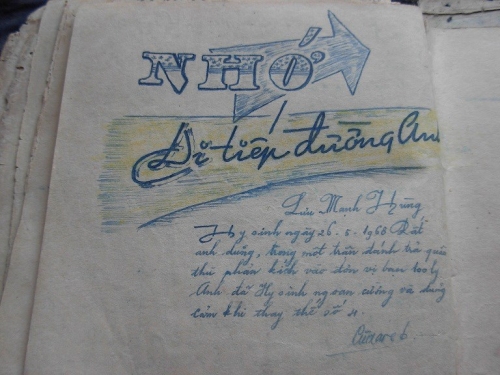 NHỚ
Đi tiếp đường Anh
Lưu Mạnh Hùng
Hy sinh ngày 26. 5. 1968 Rất
anh dũng, trong một trận đánh trả quân
thù phản kích vào đơn vị
Anh đã Hy sinh ngoan cường và dũng
cảm khi thay thế số 4.